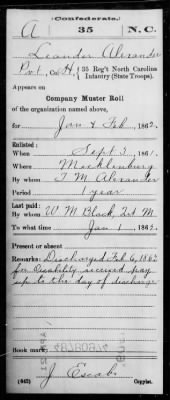 Confederate.
A 35 N.C.
Leander Alexander
Pvt., Co. H, 35 Reg't North Carolina
Infantry (State Troops).
Appears on
Company Muster Roll
of the organization named above,
for Jan & Feb, 1862.
Enlisted:
When Sept 3, 1861.
Where Mecklenburg
By whom T M Alexander
Period 1 year
Last paid:
By whom W M Black, 2d M
To what time Jan 1, 1862.
Present or absent
Remarks: Discharged Feb 6, 1862
for disability received pay
up to this day of discharge
Book mark:
(642) Copyist.